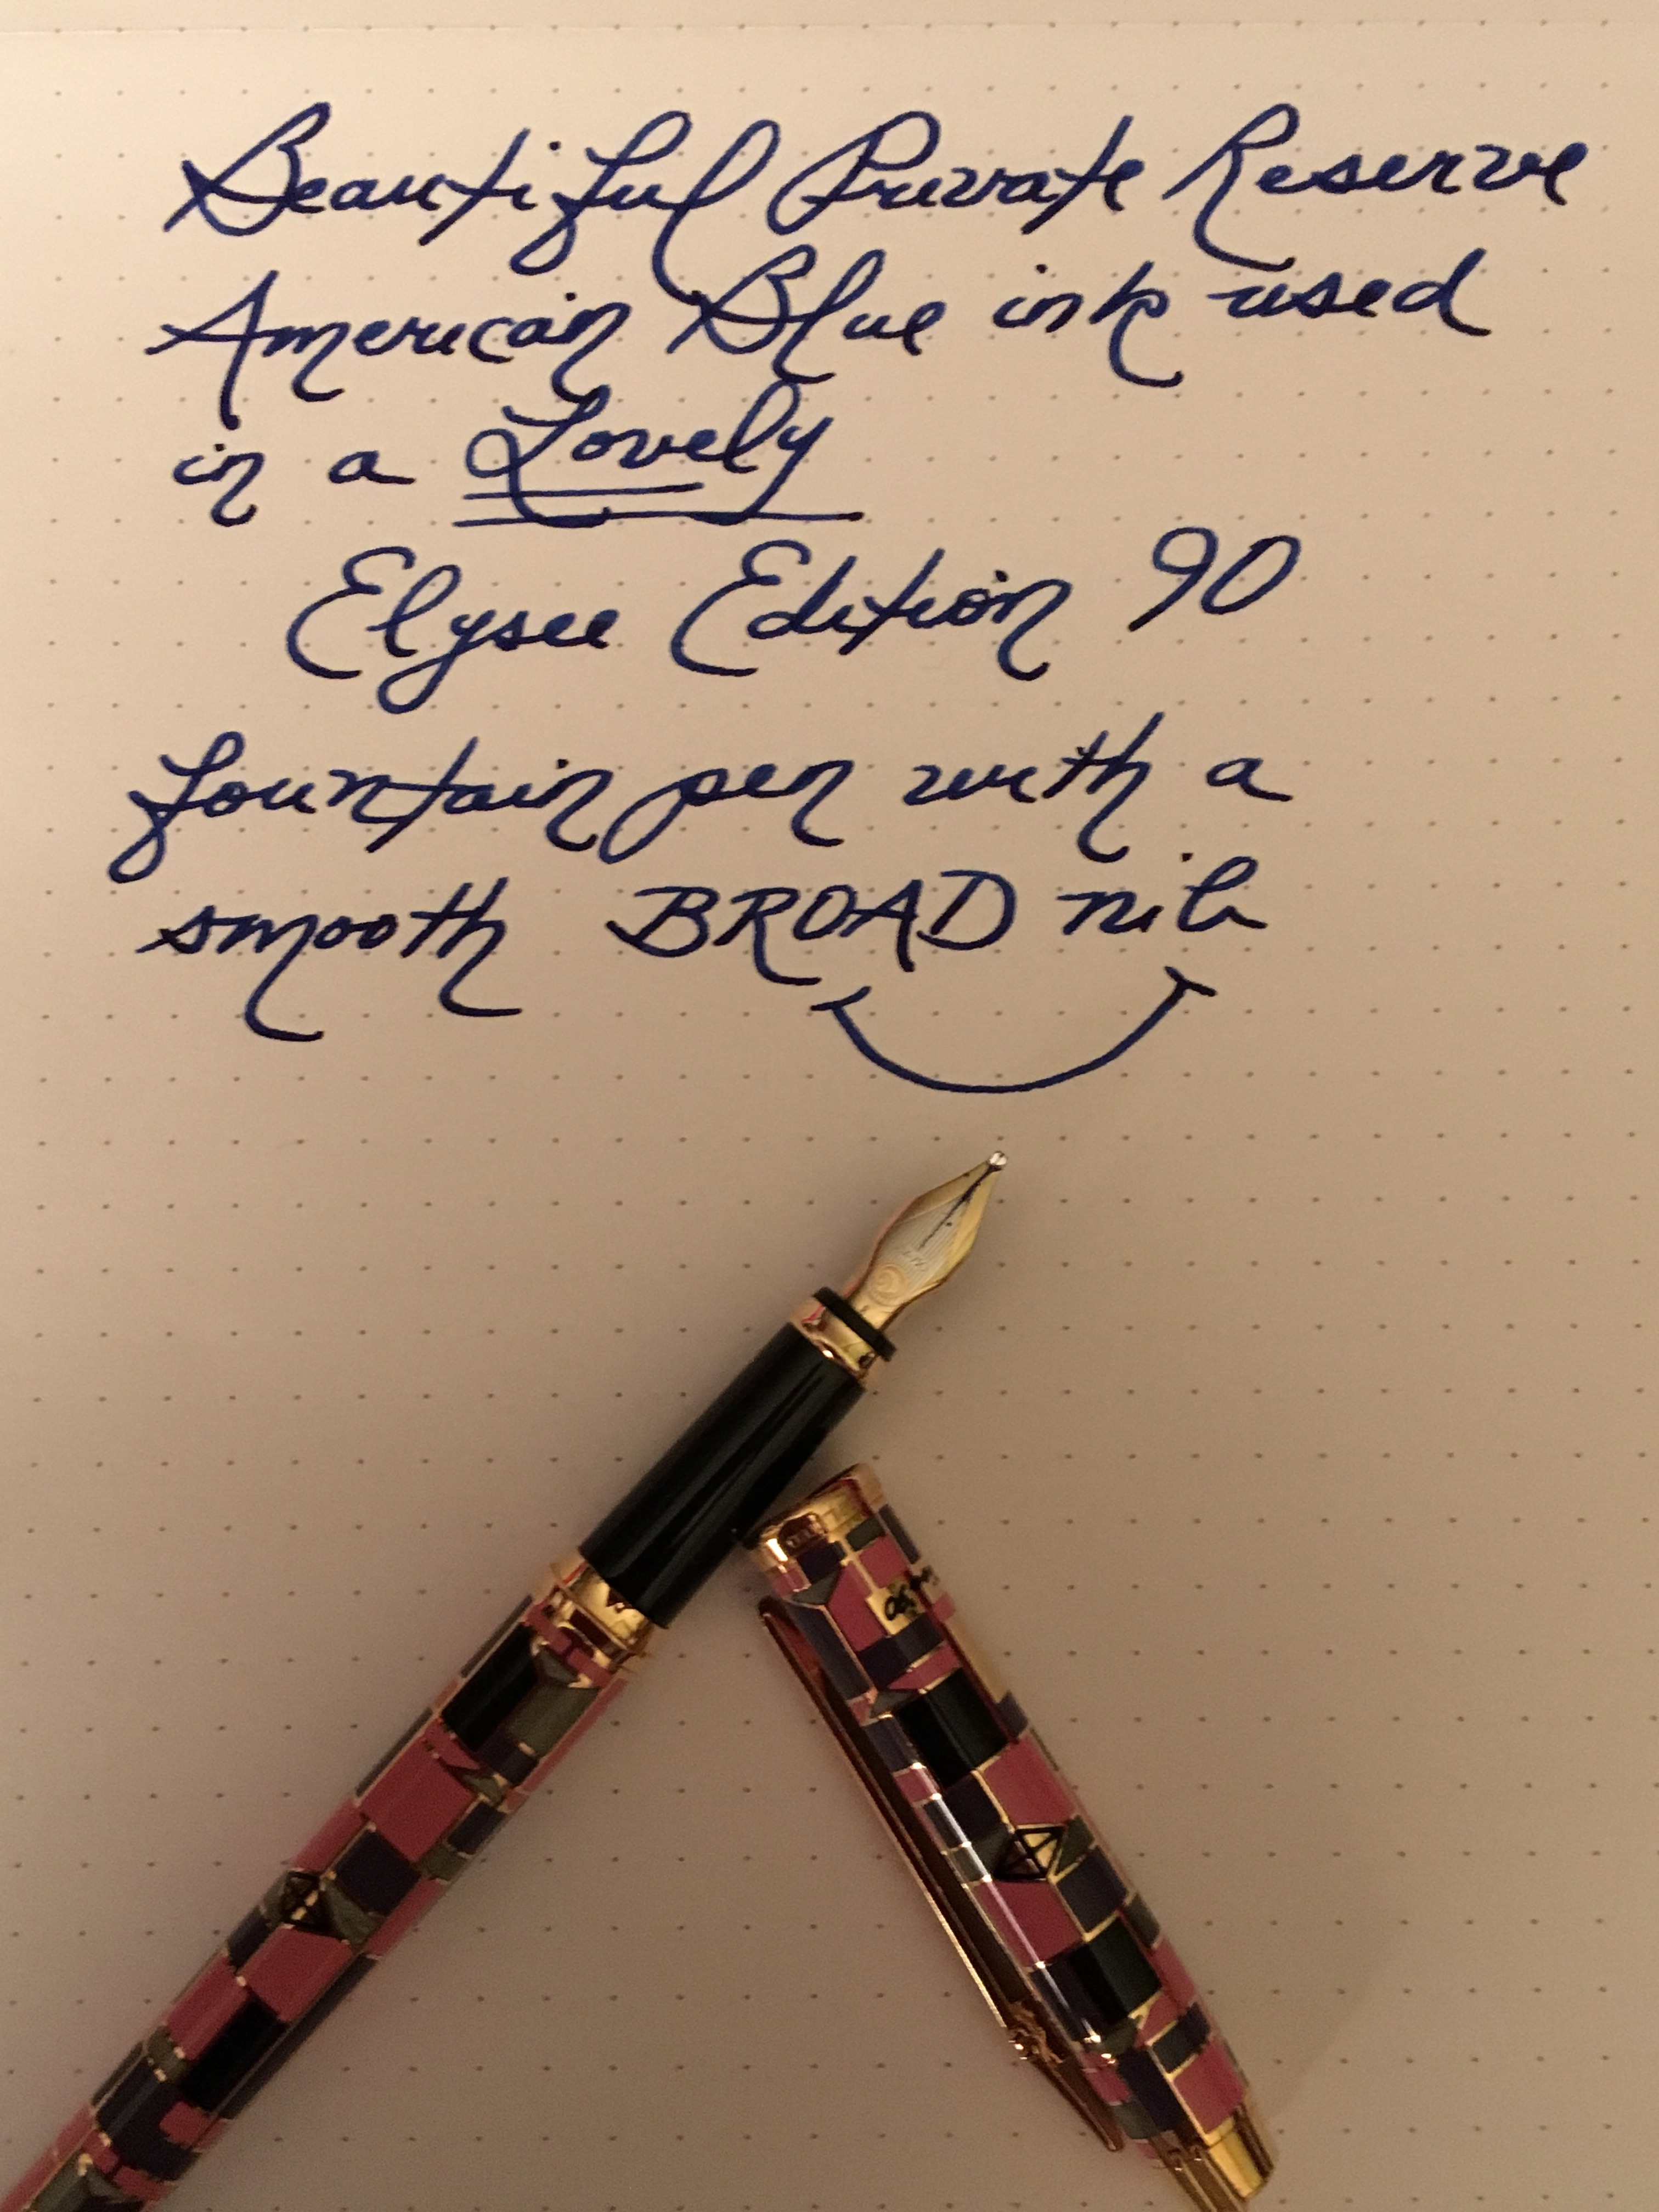 Beautiful Private Reserve
American Blue ink used
in a Lovely
Elysee Edition 90
fountain pen with a
smooth BROAD nib